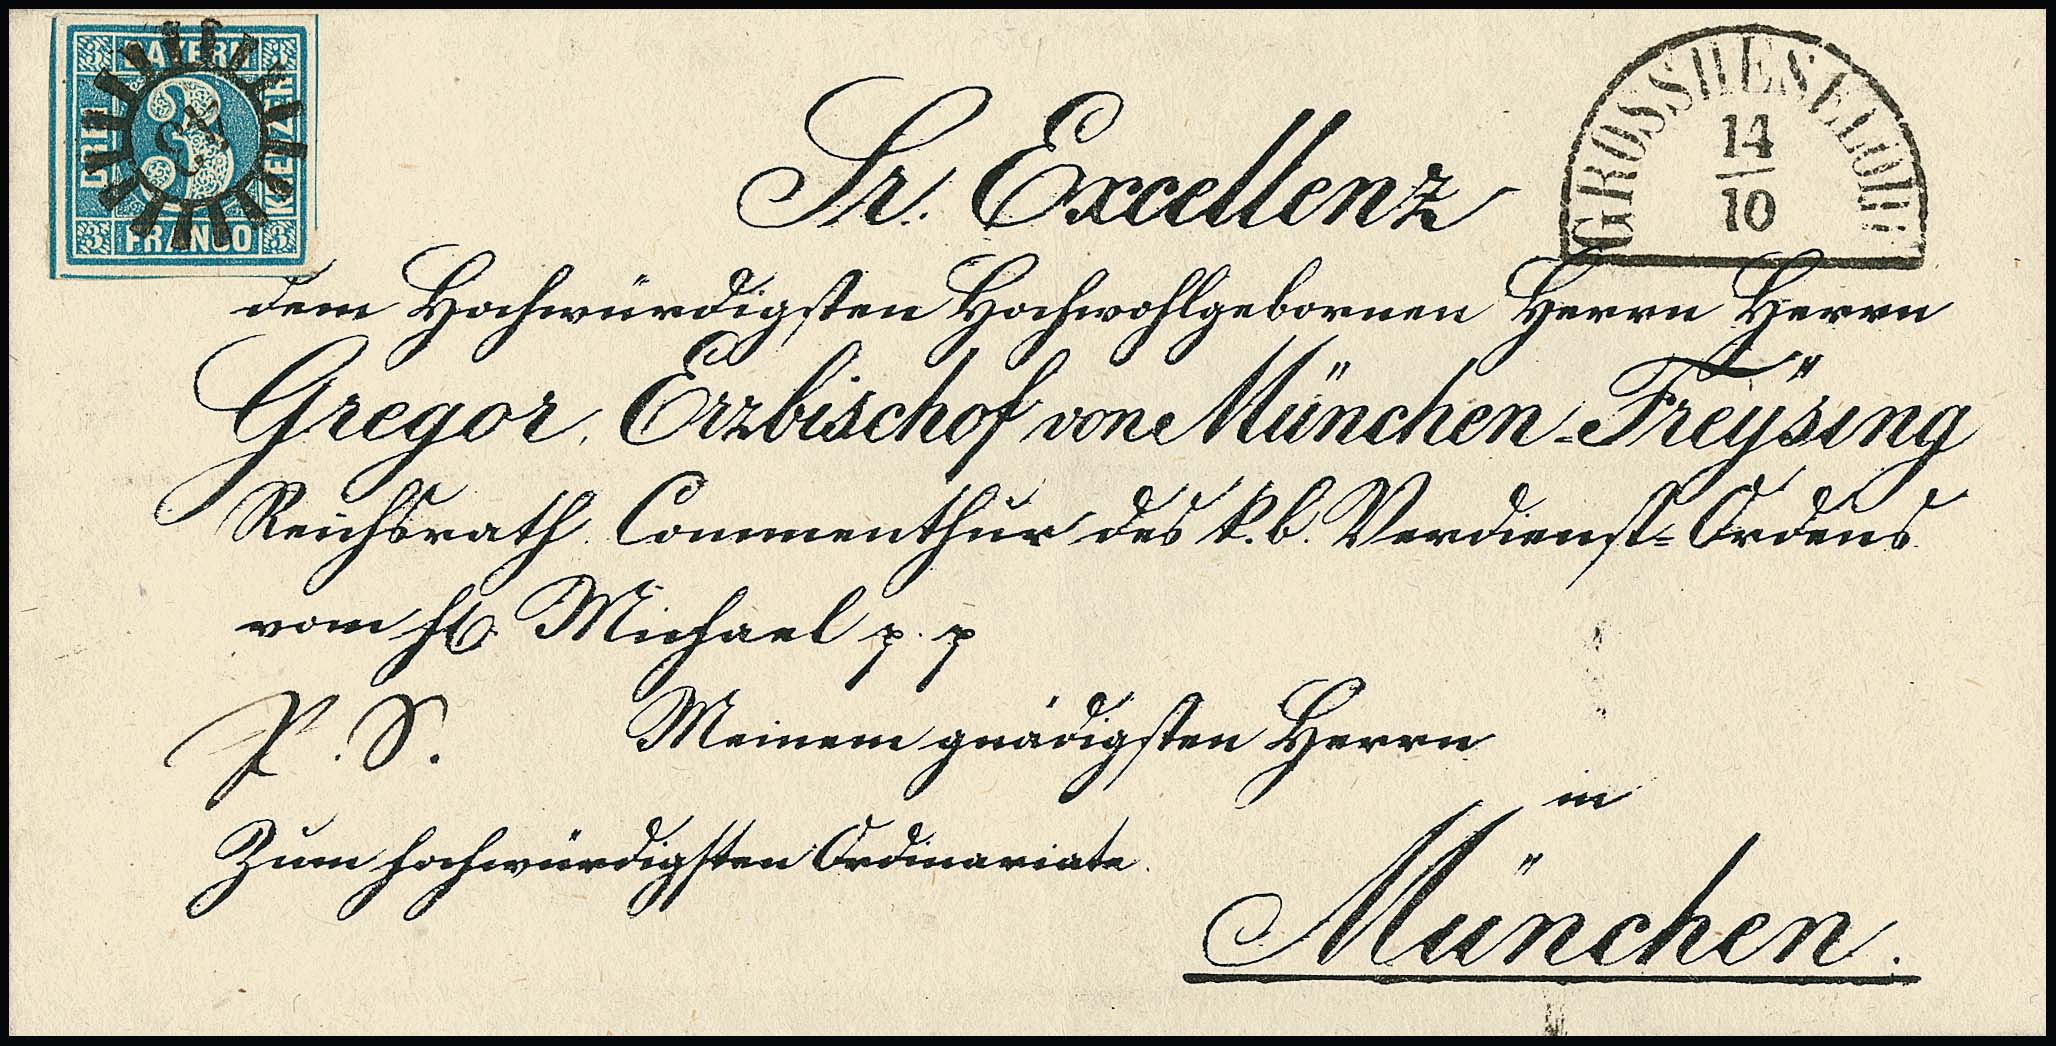 BAYERN
DREI
3
KREUZER
FRANCO
GROSSHESELOHE
14
10
Sr. Excellenz
dem Hochwürdigsten Hochwohlgebornen Herrn Herrn
Gregor, Erzbischof von München-Freÿsing
Reichsrath, Commenthur des k. b. Verdienst-Ordens
vom hl. Michael p. p
P. S. Meinem gnädigsten Herrn
in
Zum hochwürdigsten Ordinariate.
München.